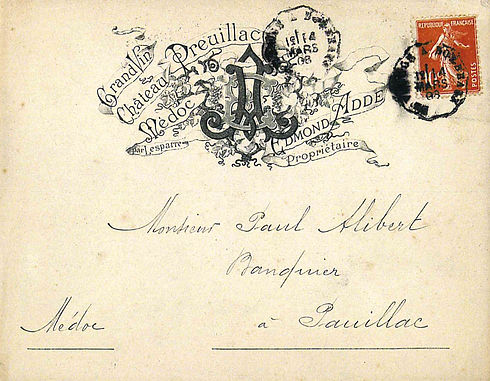 Grand Vin
Château Preuillac
Médoc
par Lesparre
EDMOND ADDE
Propriétaire
MARS
08
RÉPUBLIQUE FRANÇAISE
10
POSTES
MARS
Monsieur Paul Alibert
Banquier
Médoc
à Pauillac